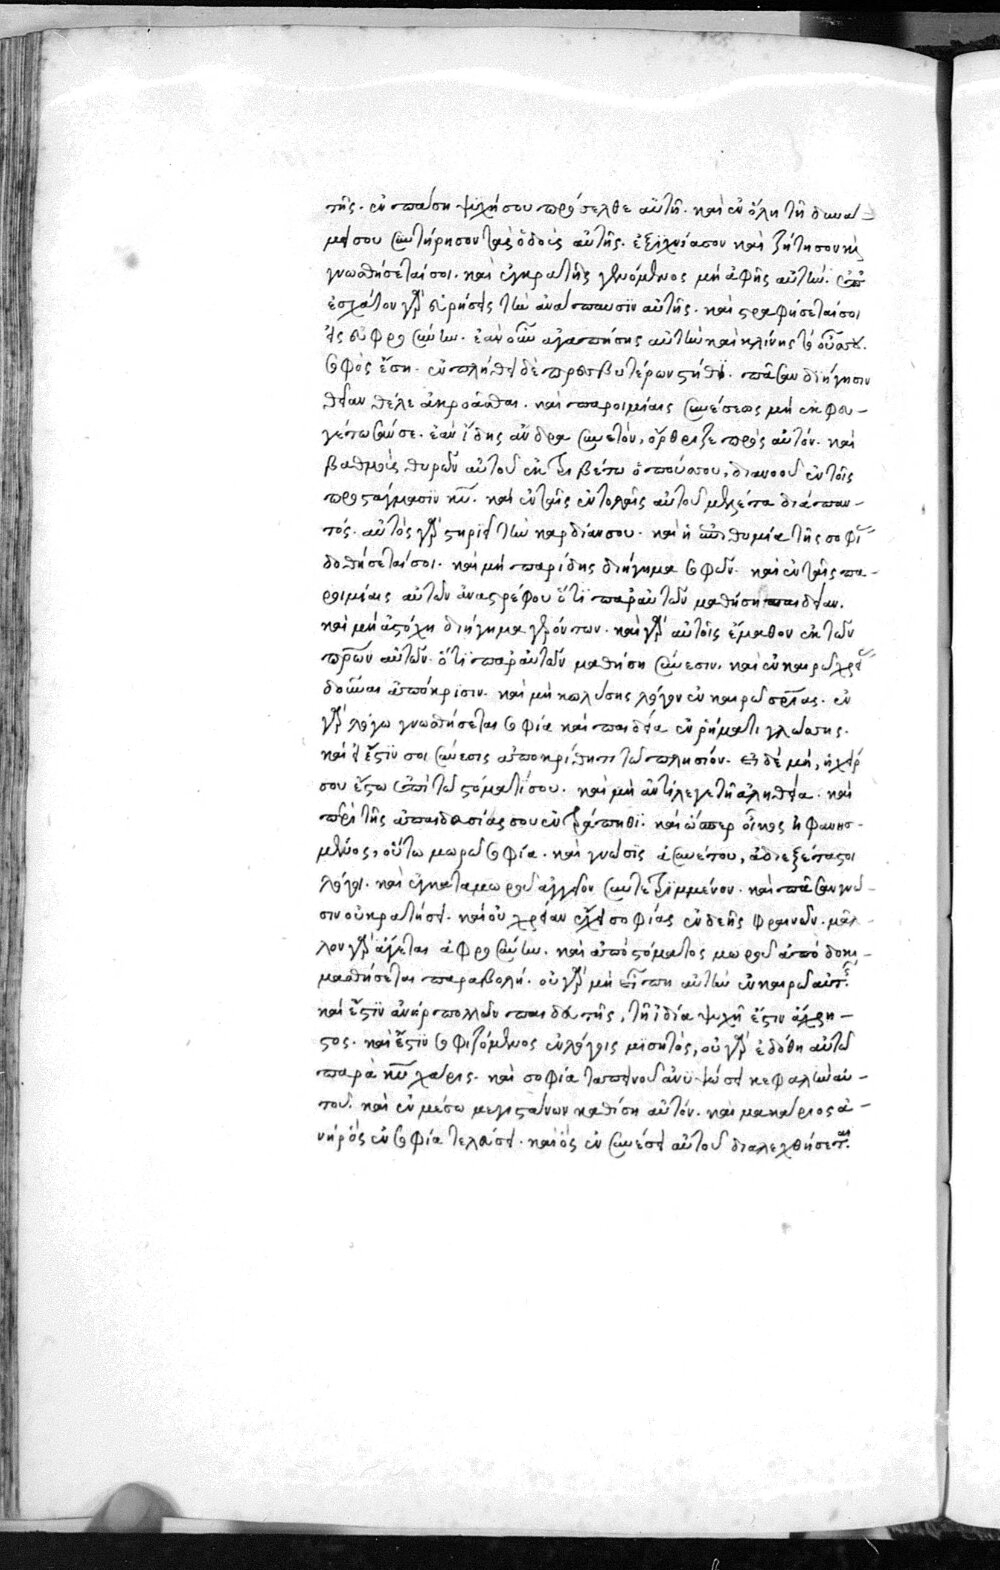 της. ἐν πάση ψυχῆ σου πρόσελθε αὐτῆ. καὶ ἐν ὅλη τῆ δυνά-
μει σου συντήρησον τὰς ὁδοὺς αὐτῆς. ἐξίχνίασον καὶ ζήτησον καὶ
γνωσθήσεταί σοι. καὶ ἐγκρατὴς γενόμενος μὴ ἀφῆς αὐτήν. ἐπ
ἐσχάτον γὰρ εὑρήσεις τὴν ἀνάπαυσιν αὐτῆς. καὶ στραφήσεταί σοι
εἰς εὐφροσύνην. ἐὰν οὖν ἀγαπήσης αὐτὴν καὶ κλίνης τὸ οὖς σου.
σοφὸς ἔση. ἐν πλήθει δὲ πρεσβυτέρων στῆθι. πᾶσαν διήγησιν
θείαν θέλε ἀκροᾶσθαι. καὶ παροιμίαις συνέσεως μὴ ἐκφευ-
γέτωσάν σε. ἐὰν ἴδης ἄνδρα συνετόν, ὄρθριζε πρὸς αὐτόν. καὶ
βαθμοὺς θυρῶν αὐτοῦ ἐκτριβέτω ὁ πούς σου, διανοοῦ ἐν τοῖς
προστάγμασιν κυ. καὶ ἐν ταῖς ἐντολαῖς αὐτοῦ μελέτα διάπαν-
τός. αὐτὸς γὰρ στηριεῖ τὴν καρδίαν σου. καὶ ἡ ἐπιθυμία τῆς σοφί
δοθήσεταί σοι. καὶ μὴ παρίδης διήγημα σοφῶν. καὶ ἐν ταῖς πα-
ροιμίαις αὐτῶν ἀναστρέφου ὅτι παρ' αὐτῶν μαθήση παιδείαν.
καὶ μὴ ἀστόχη διήγημα γερόντων. καὶ γὰρ αὐτοῖς ἔμαθον ἐκ τῶν
πρων αὐτῶν. ὅτι παρ' αὐτῶν μαθήση σύνεσιν. καὶ ἐν καιρῶ χρεί
δοῦναι ἀπόκρισιν. καὶ μὴ κωλύσης λόγον ἐν καιρῶ σρίας. ἐν
γὰρ λόγω γνωσθήσεται σοφία καὶ παιδεία ἐν ῥήματι γλώσσης.
καὶ εἰ ἔστιν σοι σύνεσις ἀποκρίθητι τῶ πλησίον. εἰ δὲ μή, ἡ χείρ
σου ἔστω ἐπὶ τῶ στόματί σου. καὶ μὴ ἀντίλεγε τῆ ἀληθεία. καὶ
περὶ τῆς ἀπαιδευσίας σου ἐντράπηθι. καὶ ὥσπερ οἶκος ἠφανισ-
μένος, οὕτω μωρῶ σοφία. καὶ γνῶσις ἀσυνέτου, ἀδιεξέταστοι
λόγοι. καὶ ἔγκατα μωροῦ ἀγγεῖον συντετριμμένον. καὶ πᾶσαν γνῶ-
σιν οὐ κρατήσει. καὶ οὐ χρείαν ἔχει σοφίας ἐνδεὴς φρενῶν. μᾶλ-
λον γὰρ ἄγεται ἀφροσύνην. καὶ ἀπὸ στόματος μωροῦ ἀποδοκι-
μασθήσεται παραβολή. οὐ γὰρ μὴ εἴπη αὐτὴν ἐν καιρῶ αὐτ
καὶ ἔστιν ἀνὴρ πολλῶν παιδευτής, τῆ ἰδία ψυχῆ ἔστιν ἄχρη-
στος. καὶ ἔστιν σοφιζόμενος ἐν λόγοις μισητός, οὐ γὰρ ἐδόθη αὐτῶ
παρὰ κυ χάρις. καὶ σοφία ταπεινοῦ ἀνυψώσει κεφαλὴν αὐ-
τοῦ. καὶ ἐν μέσω μεγιστάνων καθίση αὐτόν. καὶ μακάριος ἀ-
νὴρ ὃς ἐν σοφία τελευτήσει. καὶ ὃς ἐν συνέσει αὐτοῦ διαλεχθήσεται